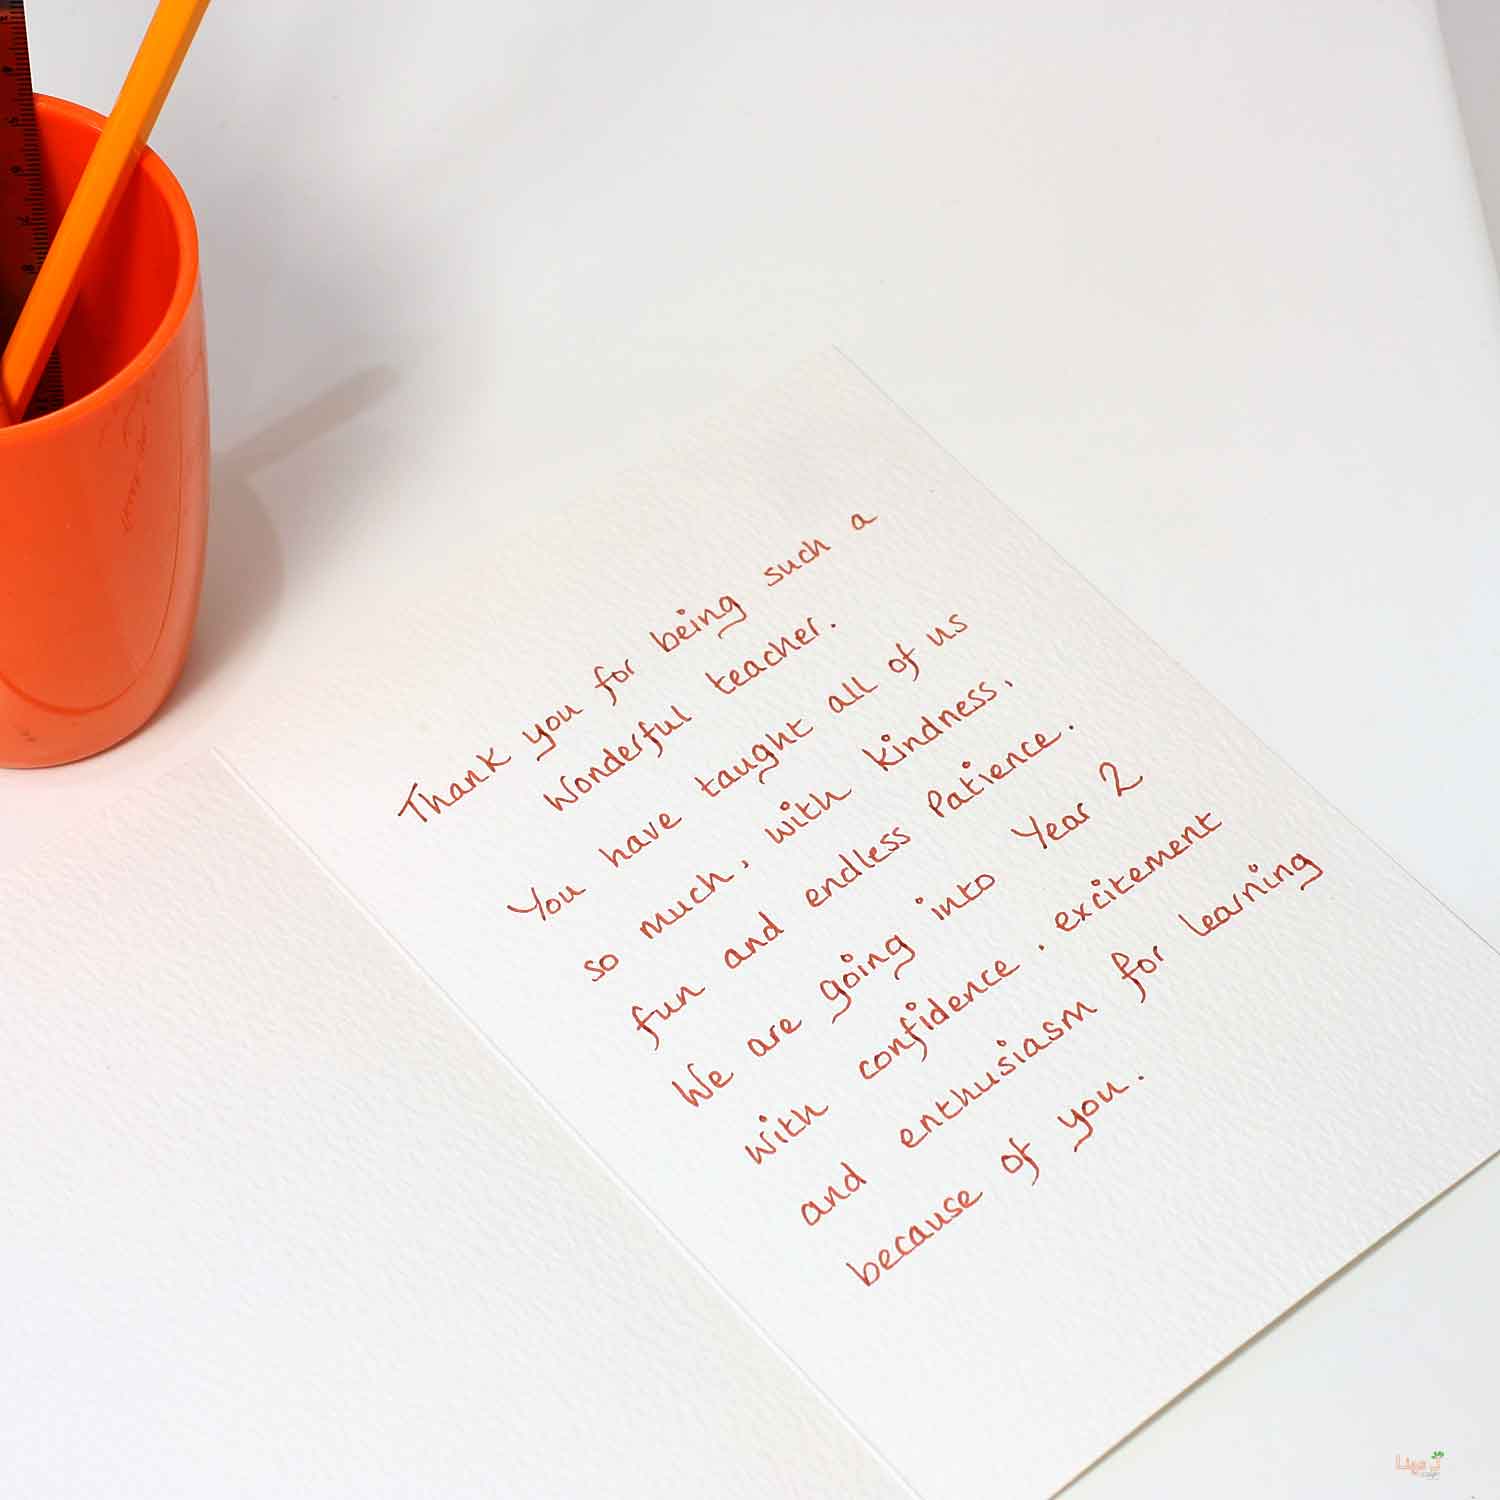 Thank you for being such a
Wonderful teacher.
You have taught all of us
so much, with kindness,
fun and endless Patience.
We are going into Year 2
with confidence, excitement
and enthusiasm for learning
because of you.